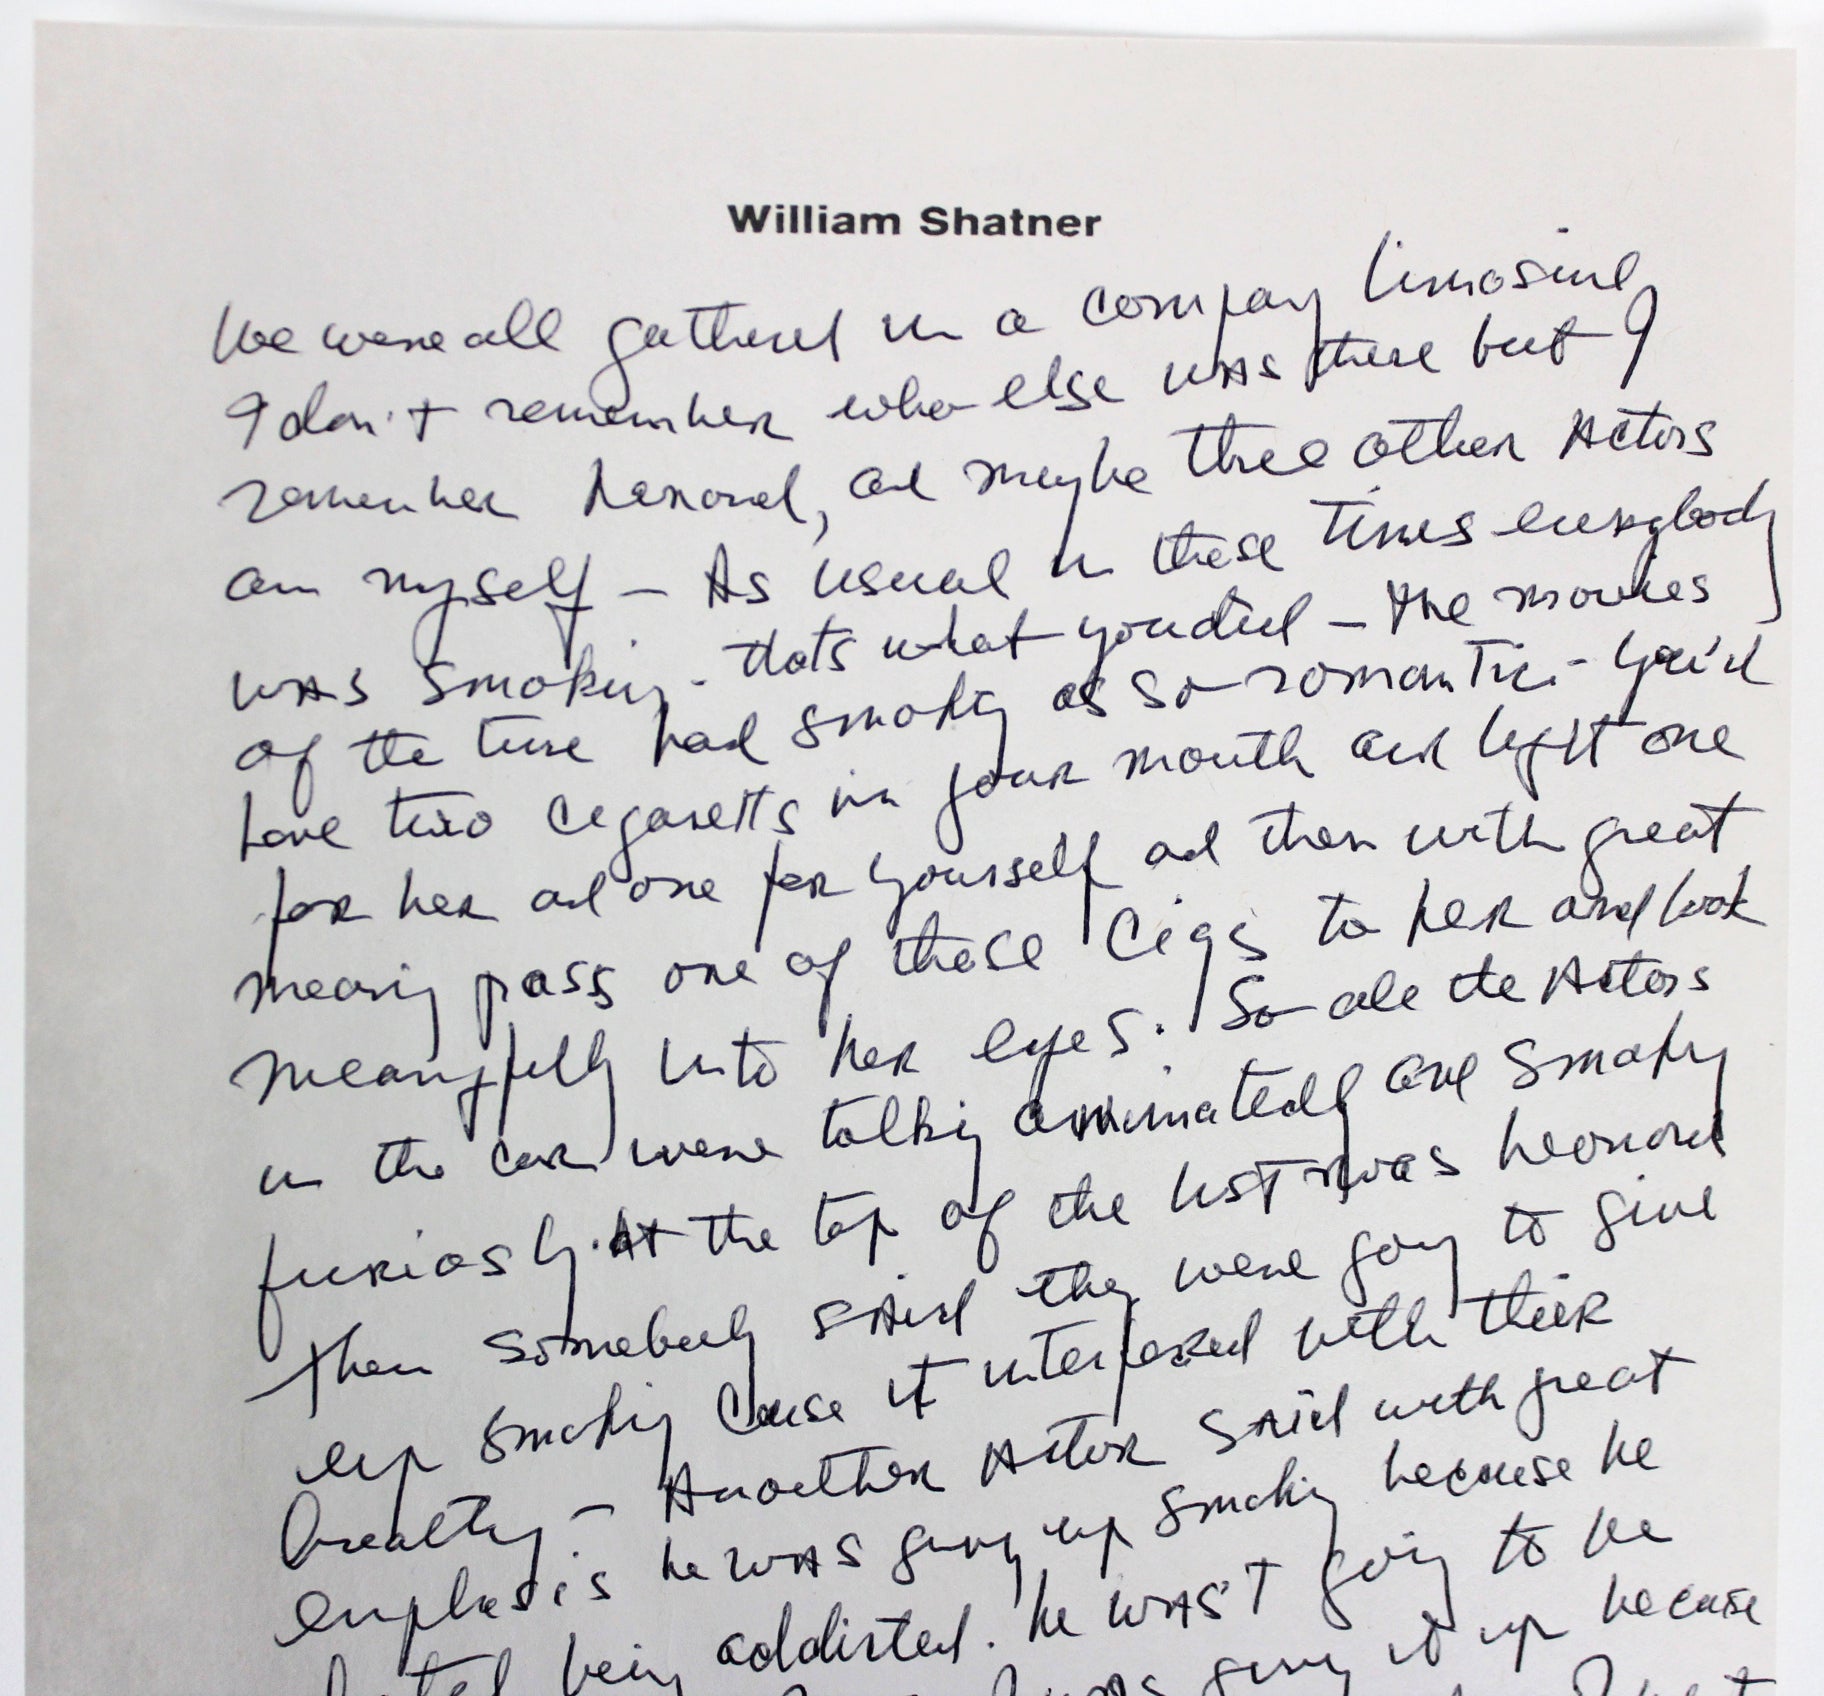 William Shatner
We were all gathered in a company limosine
I don't remember who else was there but I
remember Leonard, and maybe three other Actors
and myself – As usual in these times everybody
was smoking - thats what you did – the movies
of the time had smoking as so romantic - you'd
have two cigaretts in your mouth and light one
for her and one for yourself and then with great
meaning pass one of these cigs to her and look
meaningfully into her eyes. So all the Actors
in the car were talking animatedly and smoking
furiosly. At the top of the list was Leonard
Then somebody said they were going to give
up smoking cause it interfered with their
breathing – Another Actor said with great
emphasis he was giving up smoking because he
hated being addicted. he wasn't going to be
was giving it up because